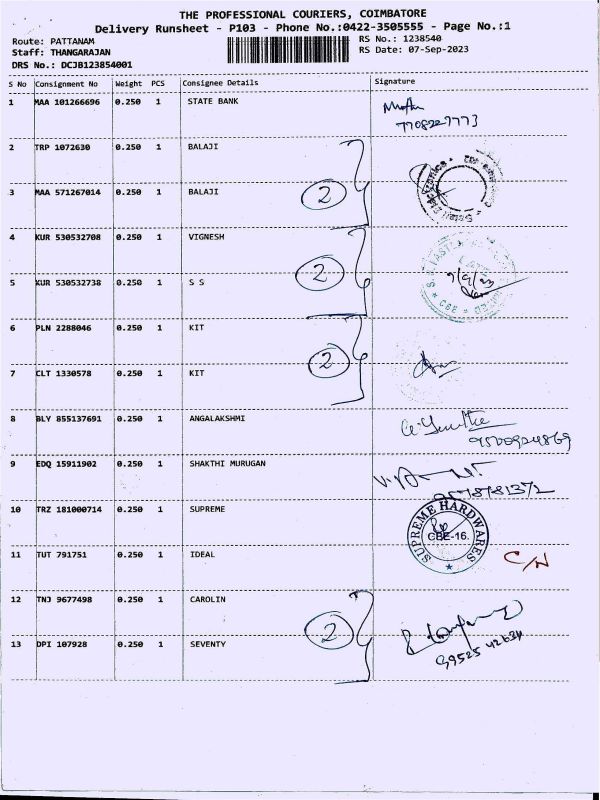 THE PROFESSIONAL COURIERS, COIMBATORE
Delivery Runsheet - P103 - Phone No.:0422-3505555 - Page No.:1
Route: PATTANAM
RS No.: 1238540
Staff: THANGARAJAN
RS Date: 07-Sep-2023
DRS No.: DCJB123854001
S No Consignment No Weight PCS Consignee Details Signature
1 MAA 101266696 0.250 1 STATE BANK
7708227773
2 TRP 1072630 0.250 1 BALAJI
2
3 MAA 571267014 0.250 1 BALAJI
4 KUR 530532708 0.250 1 VIGNESH
2
9/9/23
5 KUR 530532738 0.250 1 S S
CBE
6 PLN 2288046 0.250 1 KIT
2
7 CLT 1330578 0.250 1 KIT
8 BLY 855137691 0.250 1 ANGALAKSHMI
9500924869
9 EDQ 15911902 0.250 1 SHAKTHI MURUGAN
10 TRZ 181000714 0.250 1 SUPREME
SUPREME HARDWARES
CBE-16.
11 TUT 791751 0.250 1 IDEAL
C/N
12 TNJ 9677498 0.250 1 CAROLIN
2
13 DPI 107928 0.250 1 SEVENTY